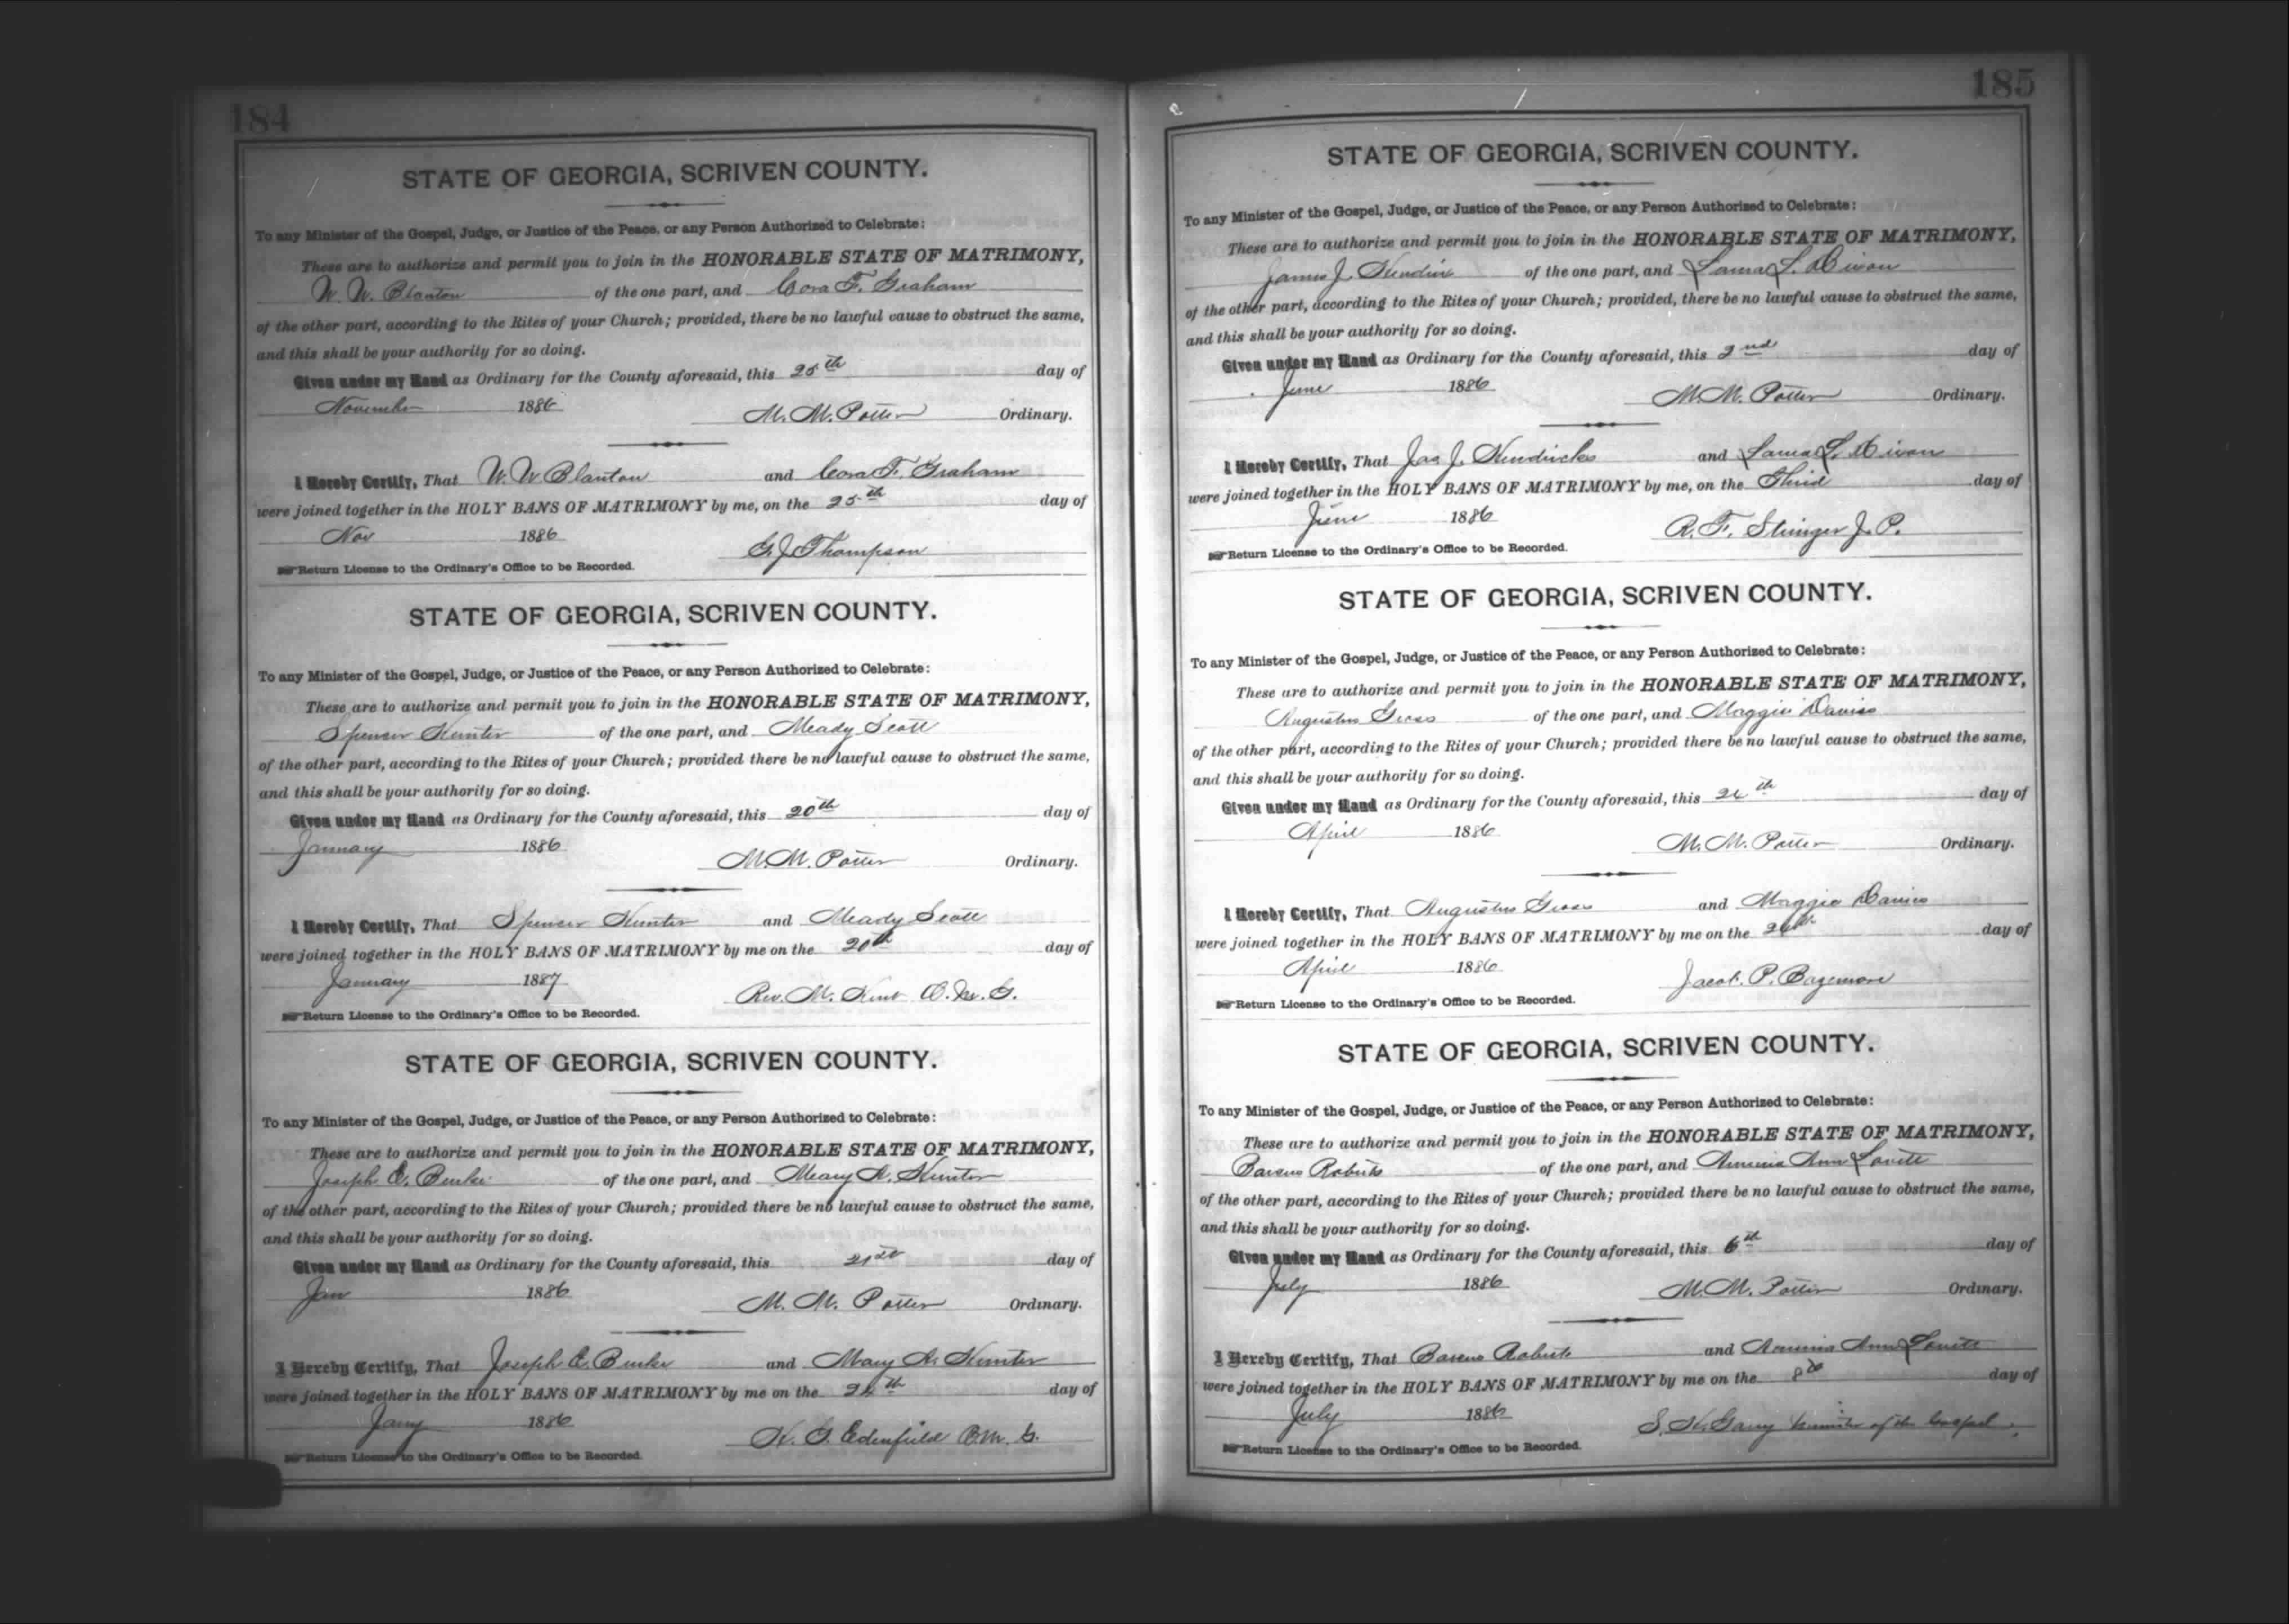 184
STATE OF GEORGIA, SCRIVEN COUNTY.
To any Minister of the Gospel, Judge, or Justice of the Peace, or any Person Authorized to Celebrate:
These are to authorize and permit you to join in the HONORABLE STATE OF MATRIMONY,
W. W. Blanton of the one part, and Cora F. Graham
of the other part, according to the Rites of your Church; provided, there be no lawful cause to obstruct the same,
and this shall be your authority for so doing.
Given under my Hand as Ordinary for the County aforesaid, this 25th day of
November 1886 M. M. Potter Ordinary.
I Hereby Certify, That W. W. Blanton and Cora F. Graham
were joined together in the HOLY BANS OF MATRIMONY by me, on the 25th day of
Nov 1886 G. J. Thompson
Return License to the Ordinary's Office to be Recorded.
STATE OF GEORGIA, SCRIVEN COUNTY.
To any Minister of the Gospel, Judge, or Justice of the Peace, or any Person Authorized to Celebrate:
These are to authorize and permit you to join in the HONORABLE STATE OF MATRIMONY,
Spencer Hunter of the one part, and Meady Scott
of the other part, according to the Rites of your Church; provided there be no lawful cause to obstruct the same,
and this shall be your authority for so doing.
Given under my Hand as Ordinary for the County aforesaid, this 20th day of
January 1886 M. M. Potter Ordinary.
I Hereby Certify, That Spencer Hunter and Meady Scott
were joined together in the HOLY BANS OF MATRIMONY by me on the 20th day of
January 1887 Rev. M. Kent
Return License to the Ordinary's Office to be Recorded.
STATE OF GEORGIA, SCRIVEN COUNTY.
To any Minister of the Gospel, Judge, or Justice of the Peace, or any Person Authorized to Celebrate:
These are to authorize and permit you to join in the HONORABLE STATE OF MATRIMONY,
Joseph E. Burke of the one part, and Mary A. Hunter
of the other part, according to the Rites of your Church; provided there be no lawful cause to obstruct the same,
and this shall be your authority for so doing.
Given under my Hand as Ordinary for the County aforesaid, this 21st day of
Jan 1886 M. M. Potter Ordinary.
I Hereby Certify, That Joseph E. Burke and Mary A. Hunter
were joined together in the HOLY BANS OF MATRIMONY by me on the 24th day of
Jany 1886 H. G. Edenfield
Return License to the Ordinary's Office to be Recorded.
185
STATE OF GEORGIA, SCRIVEN COUNTY.
To any Minister of the Gospel, Judge, or Justice of the Peace, or any Person Authorized to Celebrate:
These are to authorize and permit you to join in the HONORABLE STATE OF MATRIMONY,
James J. of the one part, and Laura L. Dixon
of the other part, according to the Rites of your Church; provided, there be no lawful cause to obstruct the same,
and this shall be your authority for so doing.
Given under my Hand as Ordinary for the County aforesaid, this 2nd day of
June 1886 M. M. Potter Ordinary.
I Hereby Certify, That Jas J. Hendricks and Laura L. Dixon
were joined together in the HOLY BANS OF MATRIMONY by me, on the Third day of
June 1886 R. F. Stringer J. P.
Return License to the Ordinary's Office to be Recorded.
STATE OF GEORGIA, SCRIVEN COUNTY.
To any Minister of the Gospel, Judge, or Justice of the Peace, or any Person Authorized to Celebrate:
These are to authorize and permit you to join in the HONORABLE STATE OF MATRIMONY,
Augustus Gross of the one part, and Maggie Daniss
of the other part, according to the Rites of your Church; provided there be no lawful cause to obstruct the same,
and this shall be your authority for so doing.
Given under my Hand as Ordinary for the County aforesaid, this 26th day of
April 1886 M. M. Potter Ordinary.
I Hereby Certify, That Augustus Gross and Maggie
were joined together in the HOLY BANS OF MATRIMONY by me on the 26th day of
April 1886 Jacob. P. Bazemore
Return License to the Ordinary's Office to be Recorded.
STATE OF GEORGIA, SCRIVEN COUNTY.
To any Minister of the Gospel, Judge, or Justice of the Peace, or any Person Authorized to Celebrate:
These are to authorize and permit you to join in the HONORABLE STATE OF MATRIMONY,
Roberts of the one part, and Ann Lovett
of the other part, according to the Rites of your Church; provided there be no lawful cause to obstruct the same,
and this shall be your authority for so doing.
Given under my Hand as Ordinary for the County aforesaid, this 6th day of
July 1886 M. M. Potter Ordinary.
I Hereby Certify, That Roberts and Ann Lovett
were joined together in the HOLY BANS OF MATRIMONY by me on the 8th day of
July 1886 Minister of the Gospel.
Return License to the Ordinary's Office to be Recorded.